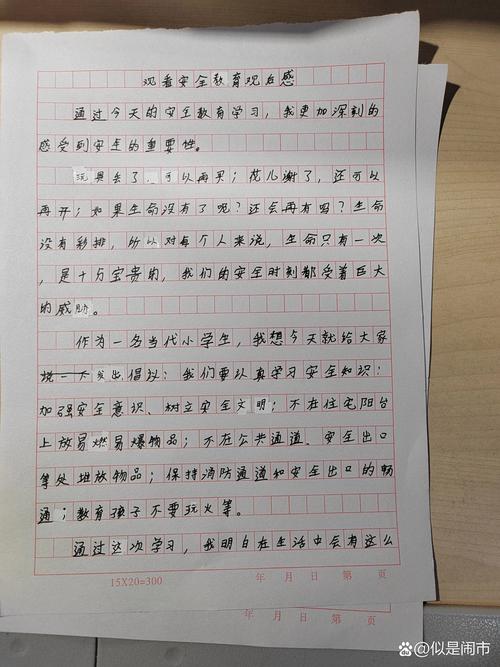 观看安全教育观后感
通过今天的安全教育学习，我更加深刻的
感受到安全的重要性。
玩具丢了，可以再买；花儿谢了，还可以
再开；如果生命没有了呢？还会再有吗？生命
没有彩排，所以对每个人来说，生命只有一次
，是十万宝贵的，我们的安全时刻都受着巨大
的威胁。
作为一名当代小学生，我想今天就给大家
说一下发出倡议：我们要认真学习安全知识：
加强安全意识、树立安全文明；不在住宅阳台
上放易燃易爆物品；不在公共通道、安全出口
等处堆放物品；保持消防通道和安全出口的畅
通；教育孩子不要玩火等。
通过这次学习，我明白在生活中会有这么
15X20=300 年 月 日 第 页
年 月 日 第 页
百家号/似是闹市